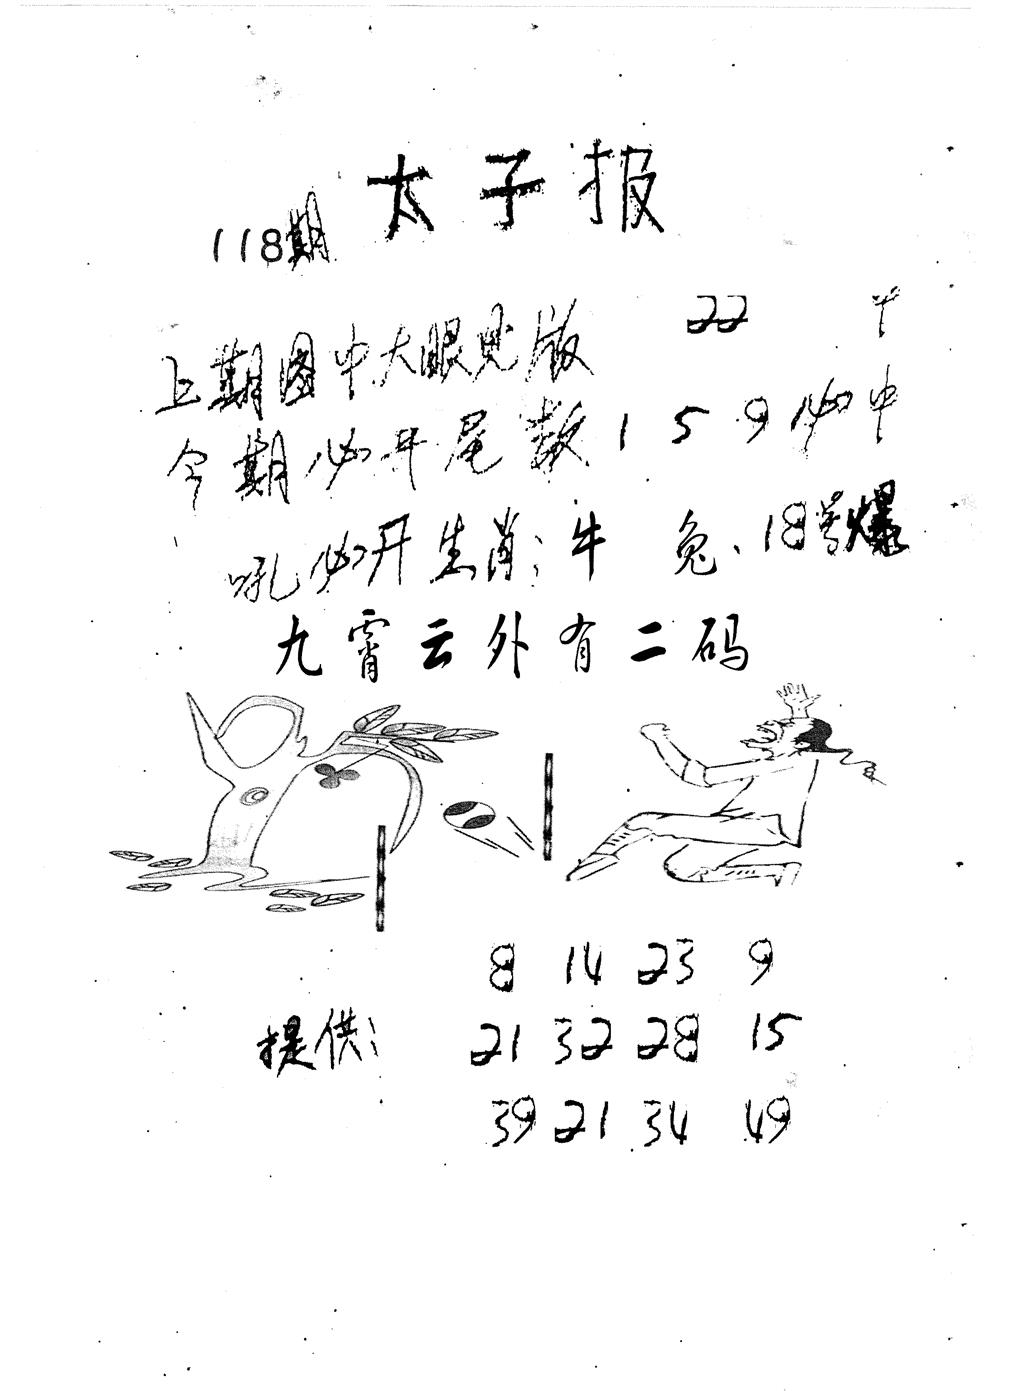 太子报
118期
上期图中大眼见版 22
今期必开尾数 1 5 9 必中
必开生肖：牛 兔、18号爆
九霄云外有二码
8 14 23 9
提供： 21 32 28 15
39 21 34 49